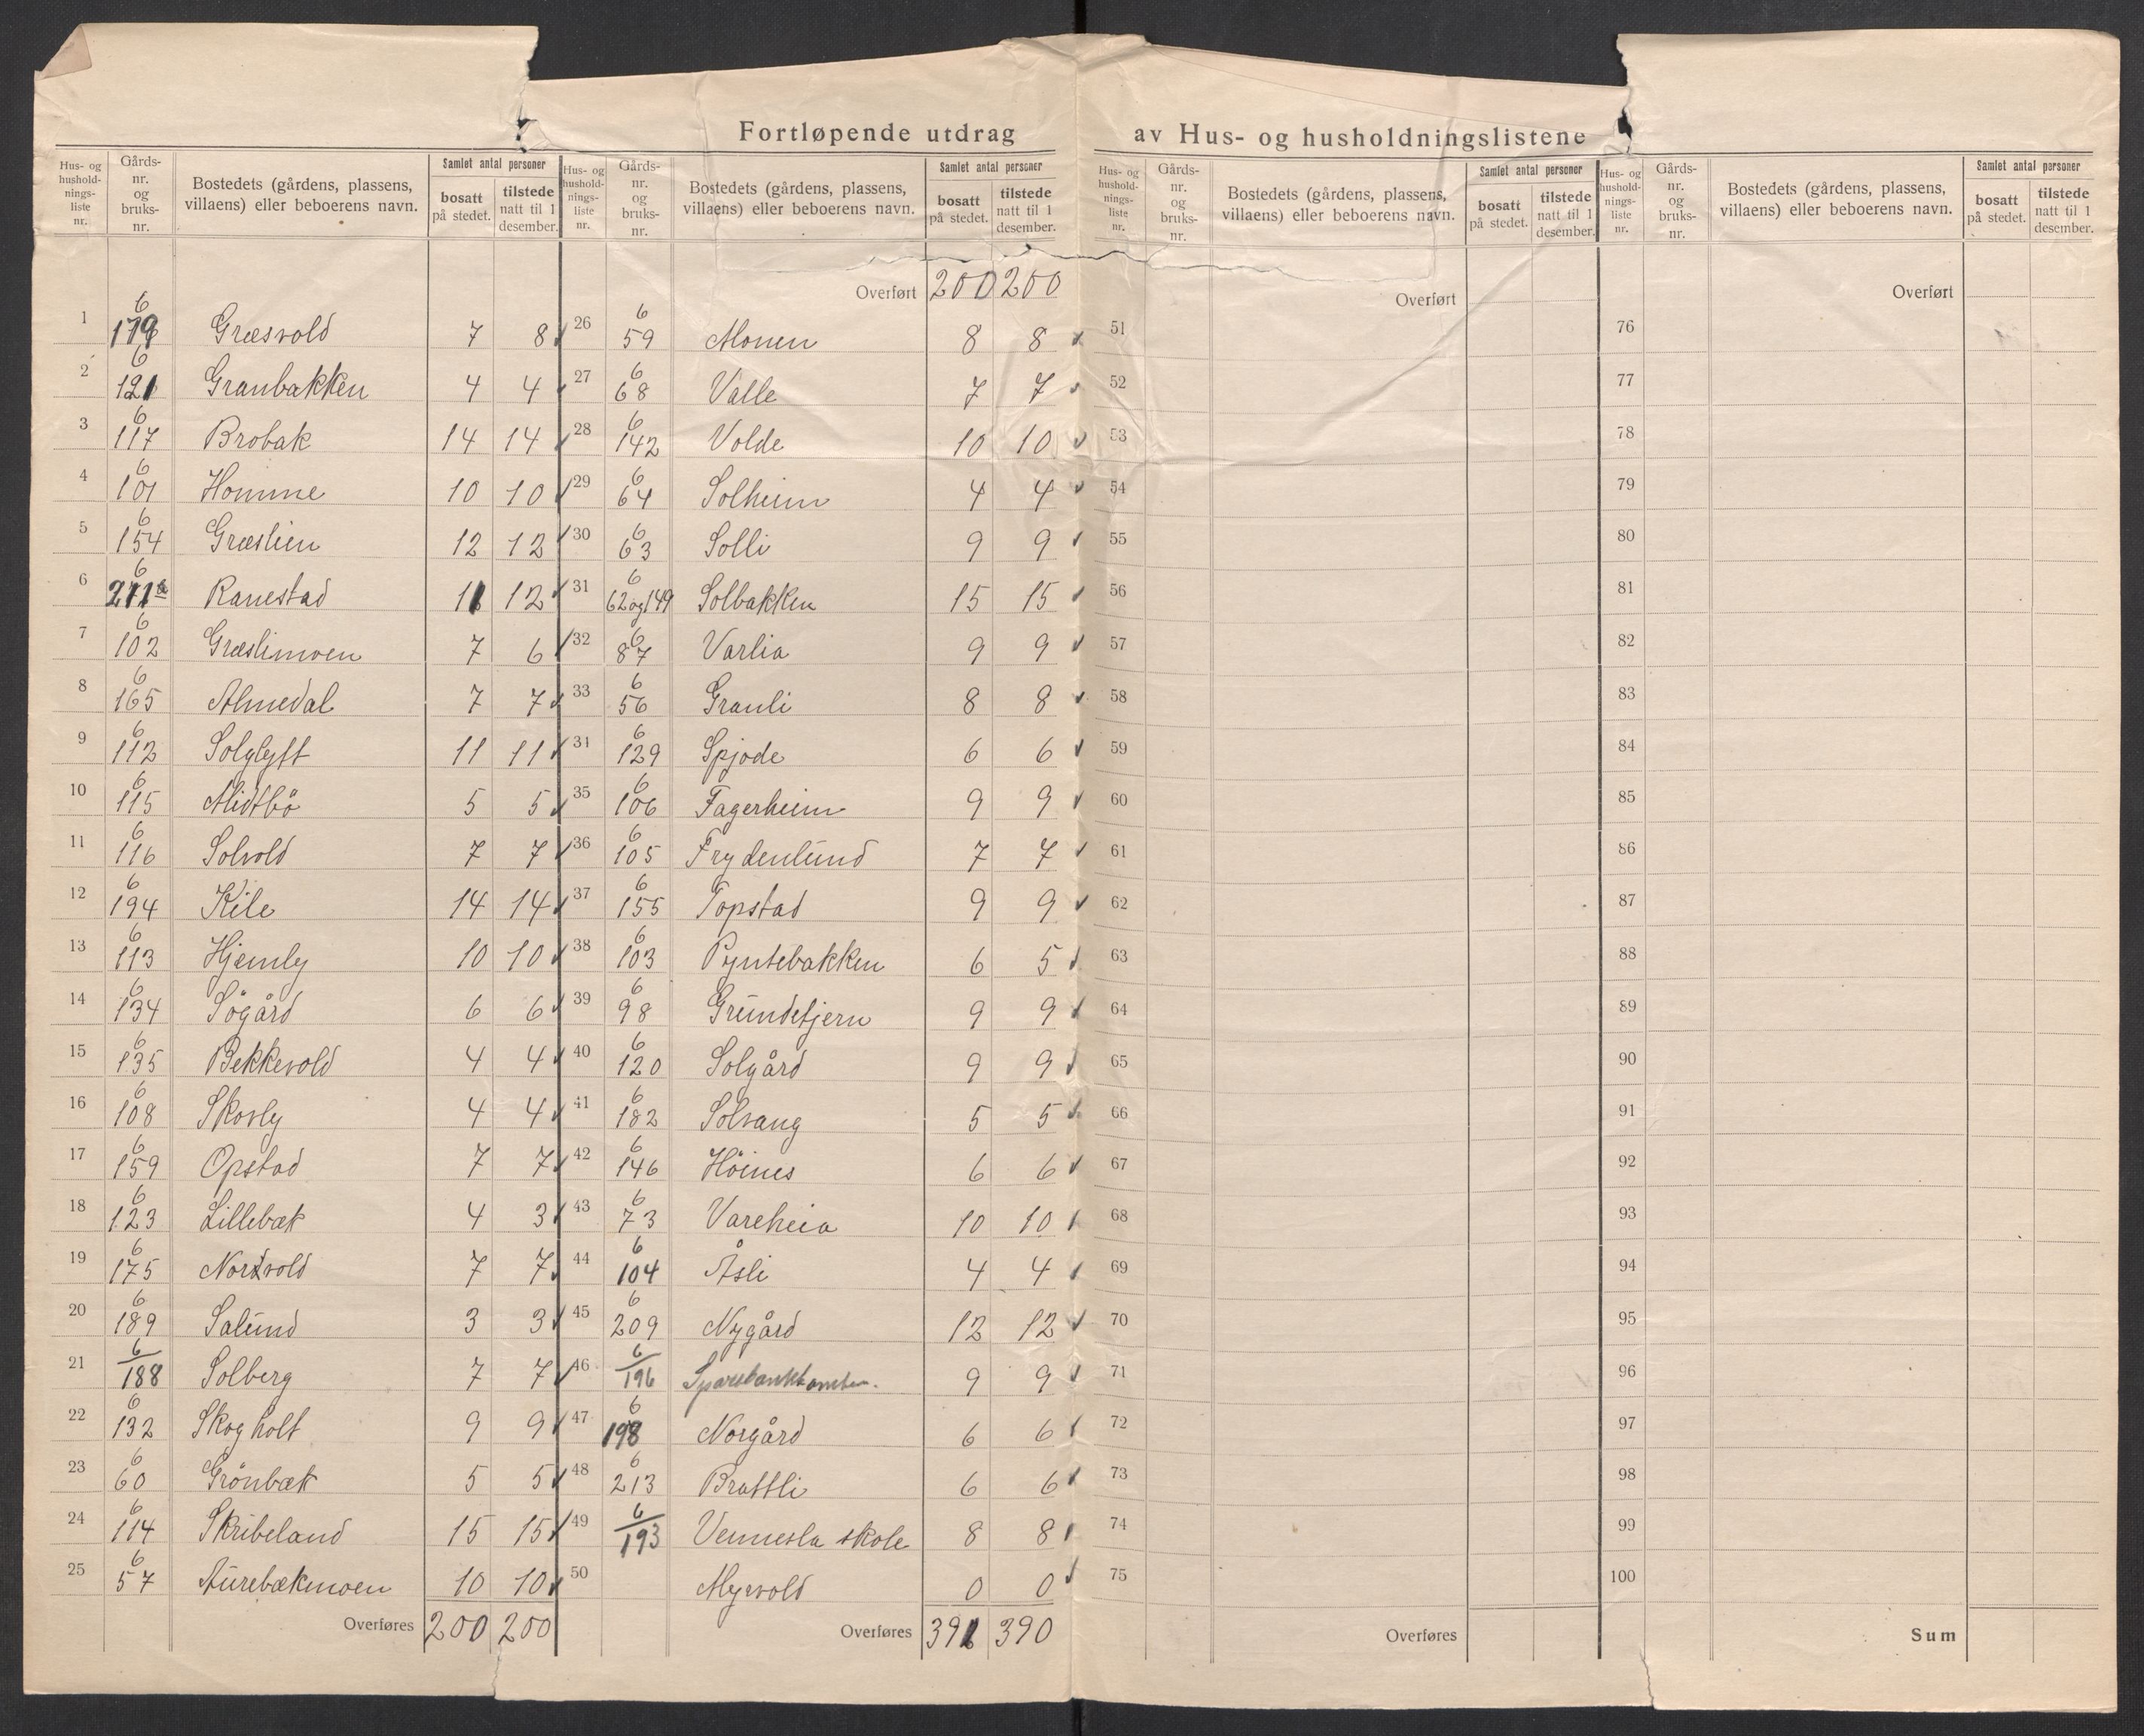 Fortløpende utdrag av Hus- og husholdningslistene
Hus- og husholdningsliste nr. | Gårds- nr. og bruks- nr. | Bostedets (gårdens, plassens, villaens) eller beboerens navn. | Samlet antal personer | bosatt på stedet. | tilstede natt til 1 desember.
1 6 179 Græsvold 7 8
2 6 121 Granbakken 4 4
3 6 117 Brobak 14 14
4 6 101 Homme 10 10
5 6 154 Græslien 12 12
6 6 Ranestad 11 12
7 6 102 Græslimoen 7 6
8 6 165 Almedal 7 7
9 6 112 Solgløtt 11 11
10 6 115 Midtbö 5 5
11 6 116 Solvold 7 7
12 6 194 Kile 14 14
13 6 113 Hjemly 10 10
14 6 134 Sögård 6 6
15 6 135 Bekkevold 4 4
16 6 108 Skovly 4 4
17 6 159 Opstad 7 7
18 6 123 Lillebæk 4 3
19 6 175 Nordvold 7 7
20 6 189 Salund 3 3
21 6/188 Solberg 7 7
22 6 132 Skogholt 9 9
23 6 60 Grönbæk 5 5
24 6 114 Skribeland 15 15
25 6 57 Aurebækmoen 10 10
Overføres 200 200
Hus- og husholdningsliste nr. | Gårds- nr. og bruks- nr. | Bostedets (gårdens, plassens, villaens) eller beboerens navn. | Samlet antal personer | bosatt på stedet. | tilstede natt til 1 desember.
Overført 200 200
26 6 59 Monen 8 8
27 6 68 Valle 7 7
28 6 142 Volde 10 10
29 6 64 Solheim 4 4
30 6 63 Solli 9 9
31 6 62 og 149 Solbakken 15 15
32 6 87 Varlia 9 9
33 6 56 Granli 8 8
34 6 129 Spjode 6 6
35 6 106 Fagerheim 9 9
36 6 105 Frydenlund 7 7
37 6 155 Topstad 9 9
38 6 103 Pyntebakken 6 5
39 6 98 Grundetjern 9 9
40 6 120 Solgård 9 9
41 6 182 Solvang 5 5
42 6 146 Höines 6 6
43 6 73 Vareheia 10 10
44 6 104 Åsli 4 4
45 6 209 Nygård 12 12
46 6/196 9 9
47 6 198 Norgård 6 6
48 6 213 Brattli 6 6
49 6/193 Vennesla skole 8 8
50 Myrvold 0 0
Overføres 391 390
Hus- og husholdningsliste nr. | Gårds- nr. og bruks- nr. | Bostedets (gårdens, plassens, villaens) eller beboerens navn. | Samlet antal personer | bosatt på stedet. | tilstede natt til 1 desember.
Overført
51
52
53
54
55
56
57
58
59
60
61
62
63
64
65
66
67
68
69
70
71
72
73
74
75
Overføres
Hus- og husholdningsliste nr. | Gårds- nr. og bruks- nr. | Bostedets (gårdens, plassens, villaens) eller beboerens navn. | Samlet antal personer | bosatt på stedet. | tilstede natt til 1 desember.
Overført
76
77
78
79
80
81
82
83
84
85
86
87
88
89
90
91
92
93
94
95
96
97
98
99
100
Sum